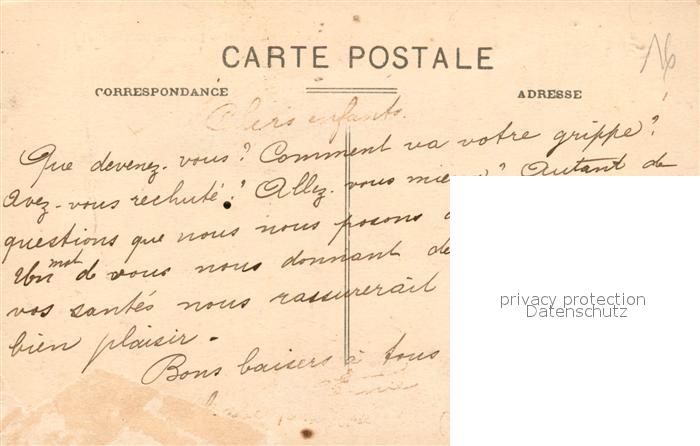 16
CARTE POSTALE
CORRESPONDANCE
ADRESSE
Chers enfants.
Que devenez-vous? Comment va votre grippe?
Avez-vous rechuté? Allez-vous mieux? Autant de
questions que nous nous posons
Un mot de vous nous donnant de
vos santés nous rassurerait
bien plaisir.
Bons baisers à tous
privacy protection
Datenschutz